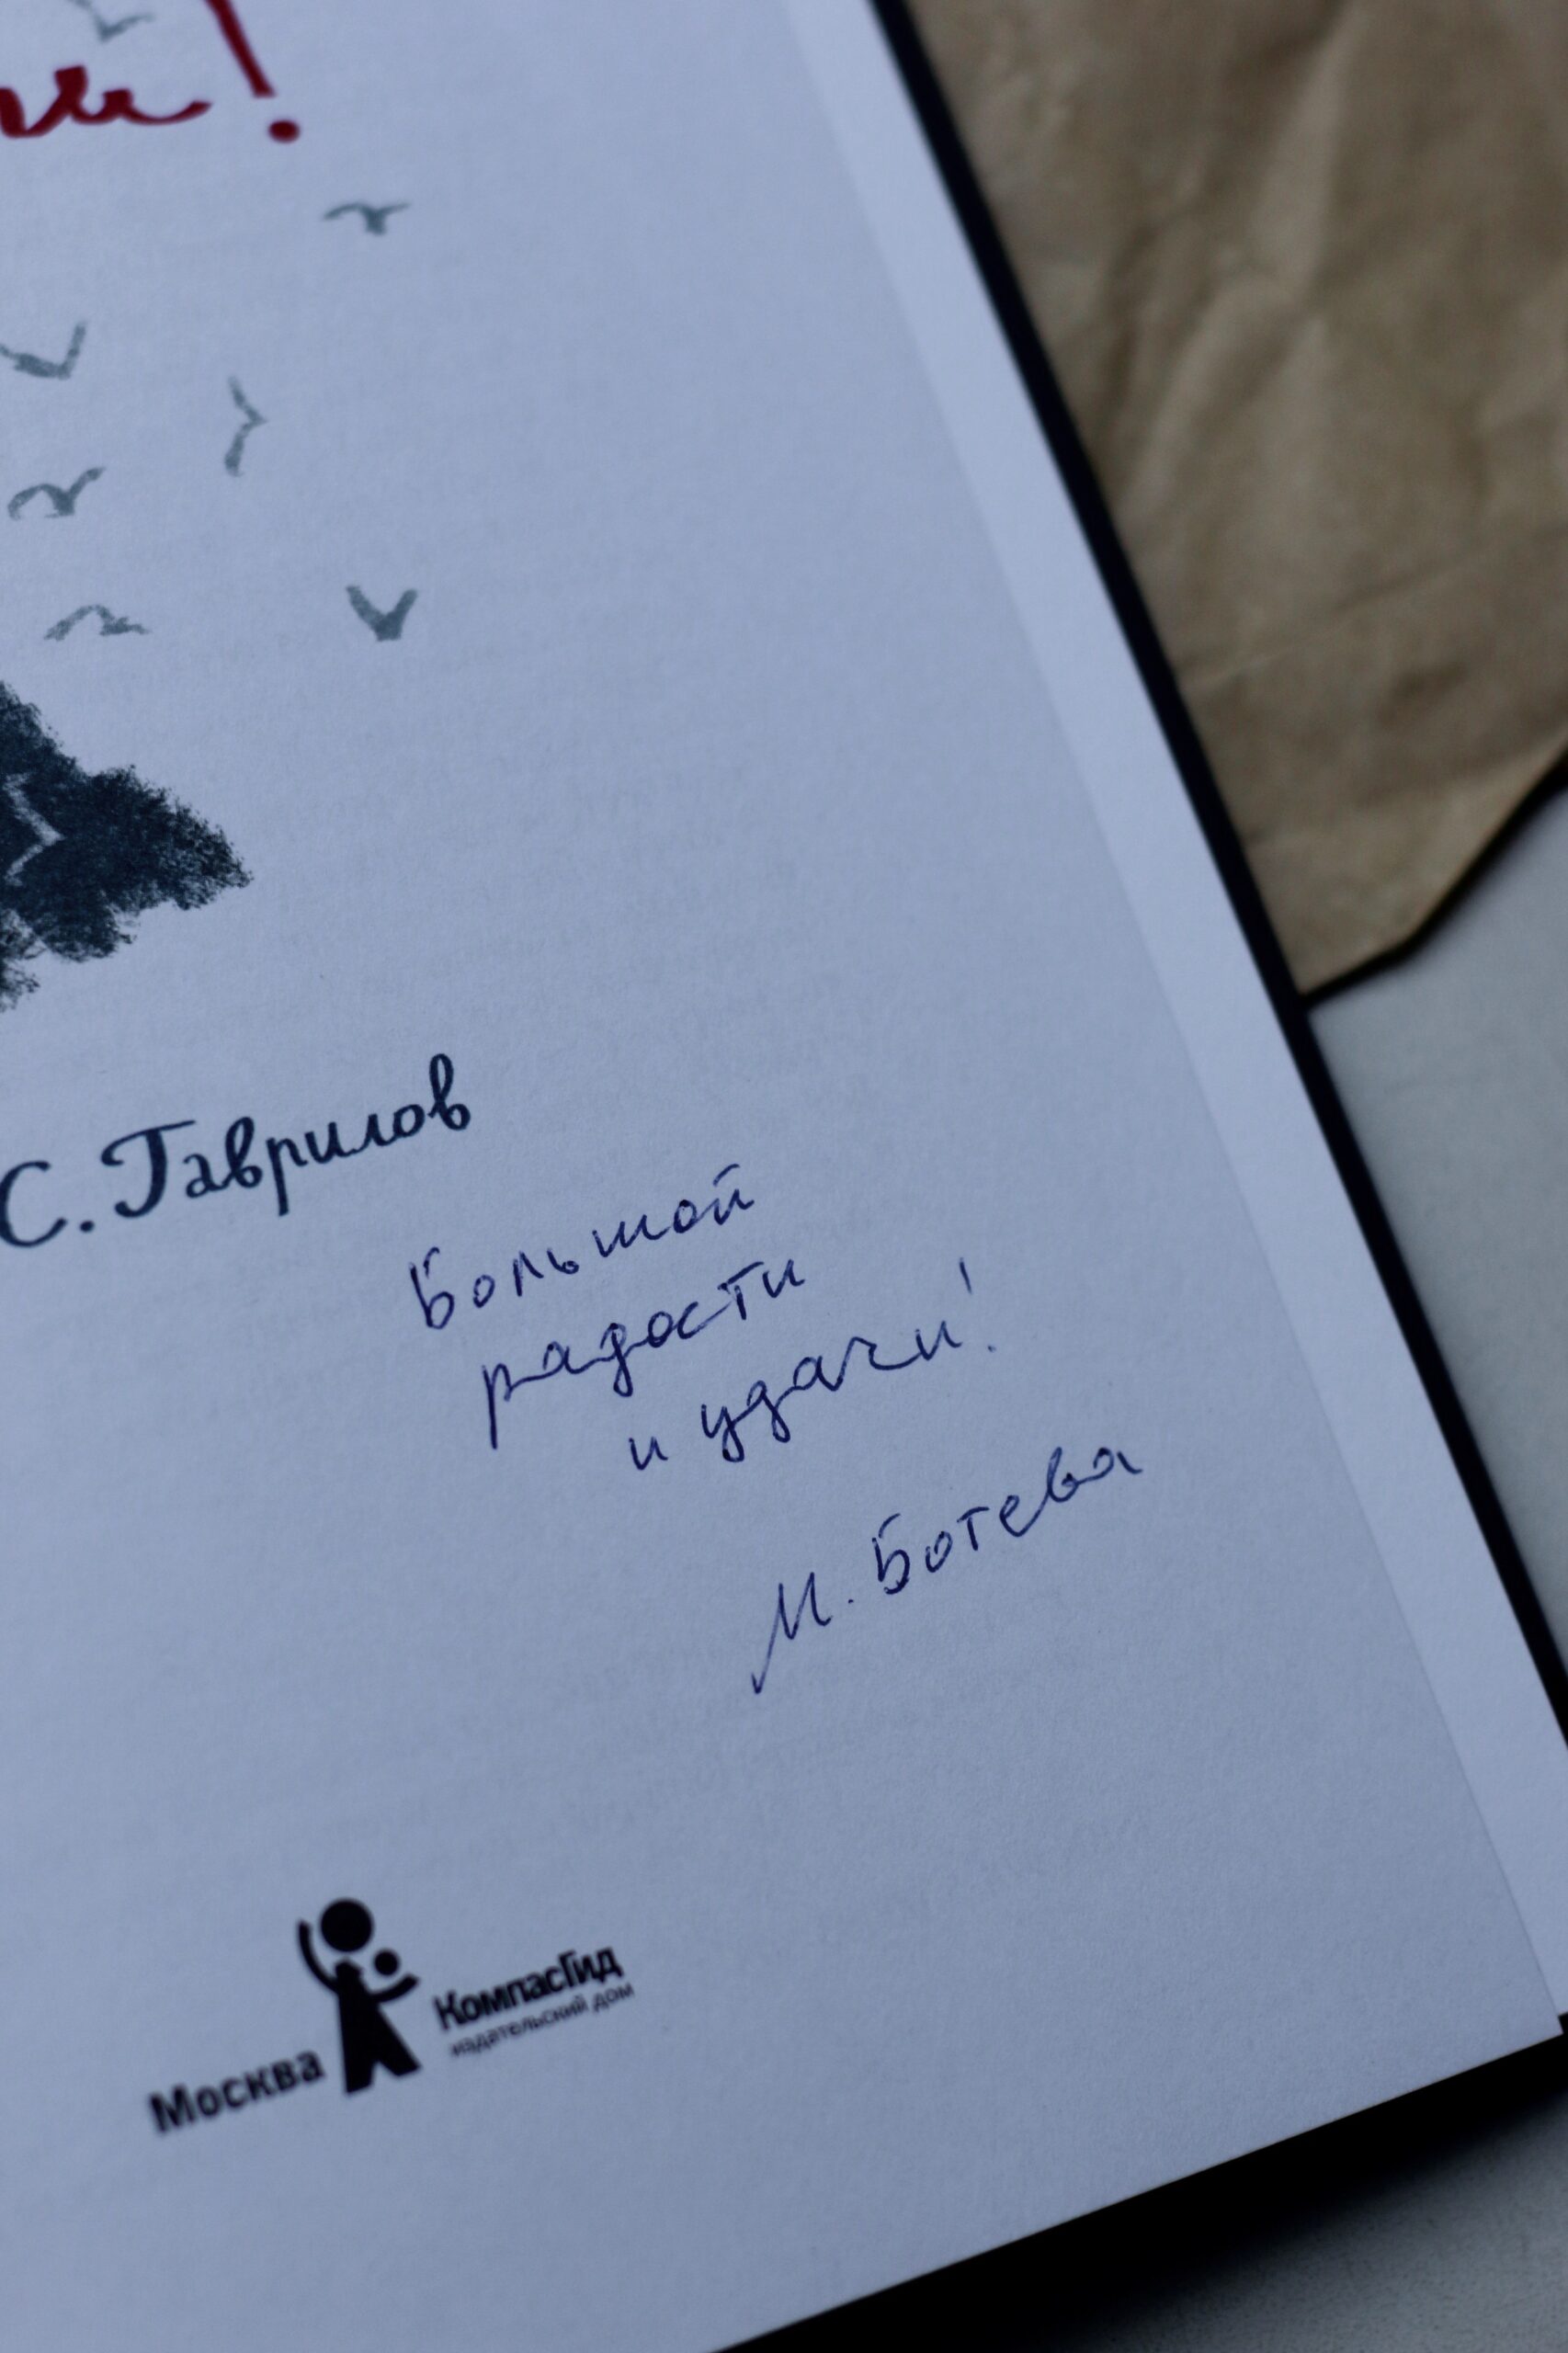 С. Гаврилов
Большой
радости
и удачи!
М. Ботева
Москва
КомпасГид
издательский дом